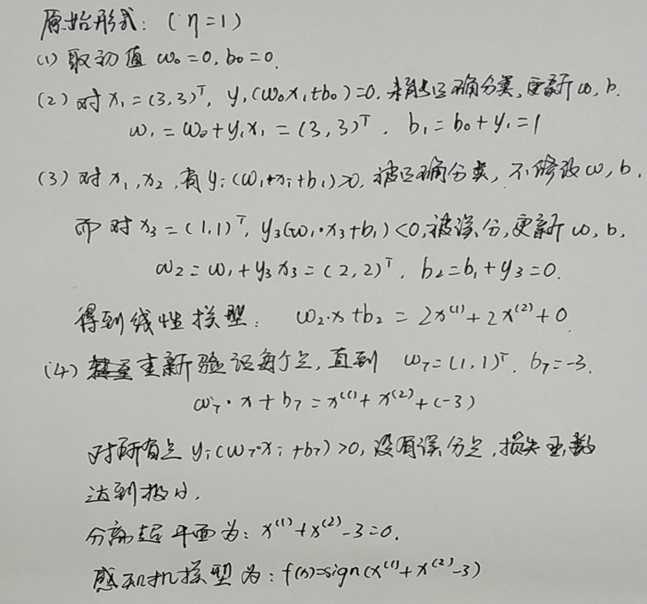 原始形式：（η=1）
(1) 取初值 ω₀=0, b₀=0.
(2) 对 x₁=(3,3)ᵀ, y₁(ω₀x₁+b₀)=0. 未能正确分类, 更新 ω, b.
ω₁=ω₀+y₁x₁=(3,3)ᵀ. b₁=b₀+y₁=1
(3) 对 x₁,x₂,有 yᵢ(ω₁·xᵢ+b₁)>0, 被正确分类, 不修改 ω, b.
而对 x₃=(1,1)ᵀ, y₃(ω₁·x₃+b₁)<0,被误分,更新 ω, b.
ω₂=ω₁+y₃x₃=(2,2)ᵀ. b₂=b₁+y₃=0.
得到线性模型: ω₂·x+b₂=2x⁽¹⁾+2x⁽²⁾+0.
(4) 重新验证每个点, 直到 ω₇=(1,1)ᵀ. b₇=-3.
ω₇·x+b₇=x⁽¹⁾+x⁽²⁾+(-3)
对所有点 yᵢ(ω₇·xᵢ+b₇)>0, 没有误分点, 损失函数
达到极小.
分离超平面为: x⁽¹⁾+x⁽²⁾-3=0.
感知机模型为: f(x)=sign(x⁽¹⁾+x⁽²⁾-3)